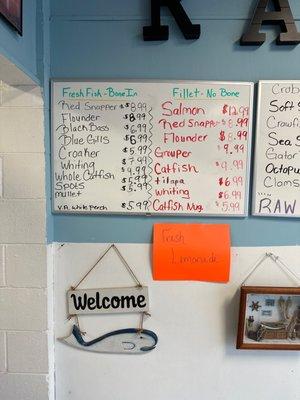 RA
Fresh Fish - Bone In
Red Snapper $8.99
Flounder $8.99
Black Bass $6.99
Blue Gills $6.99
Croaker $5.99
Whiting $7.99
Whole Catfish $4.99
Spots $5.99
mullet
V.A. white perch $5.99
Fillet - No Bone
Salmon $12.99
Red Snapper $8.99
Flounder $8.99
Grouper $9.99
Catfish $9.99
tilapia $6.99
whiting $6.99
Catfish Nug $5.99
Crab
Soft
Crawfi
Sea S
Octopu
Clams
RAW
Fresh
Lemonade
Welcome